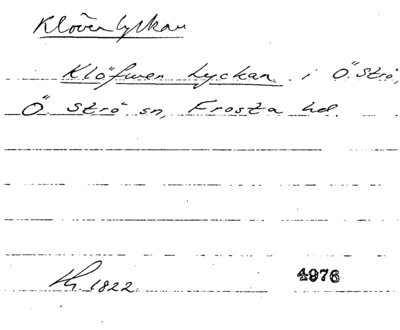 Klöverlyckan
Klöfwer Lyckan i Ö. Strö,
Ö. Strö sn, Frosta hd.
Kh. 1822
4976